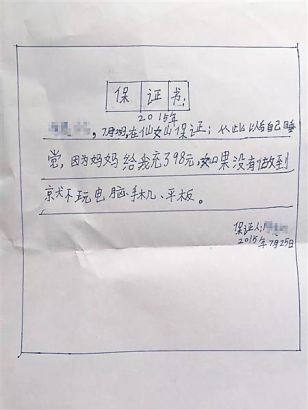 保证书:
2015年
,7月 在仙女山保证;从此以后自己睡
觉,因为妈妈给我充了98元,如果没有做到
京忧不玩电脑、手机、平板。
保证人:
2015年7月25日